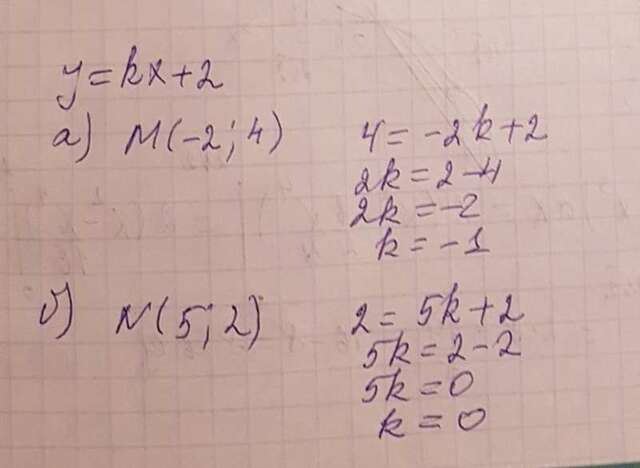 y = kx + 2
а) M(-2; 4) 4 = -2k + 2
2k = 2 - 4
2k = -2
k = -1
б) N(5; 2) 2 = 5k + 2
5k = 2 - 2
5k = 0
k = 0